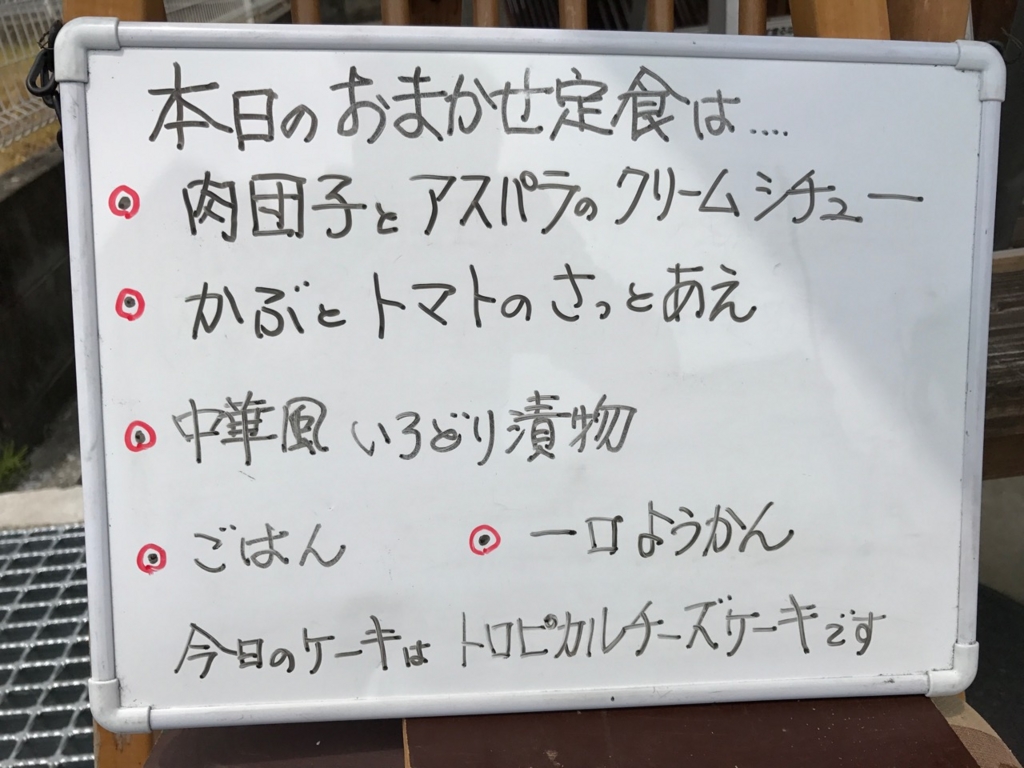 本日のおまかせ定食は....
肉団子とアスパラのクリームシチュー
かぶとトマトのさっとあえ
中華風いろどり漬物
ごはん 一口ようかん
今日のケーキはトロピカルチーズケーキです